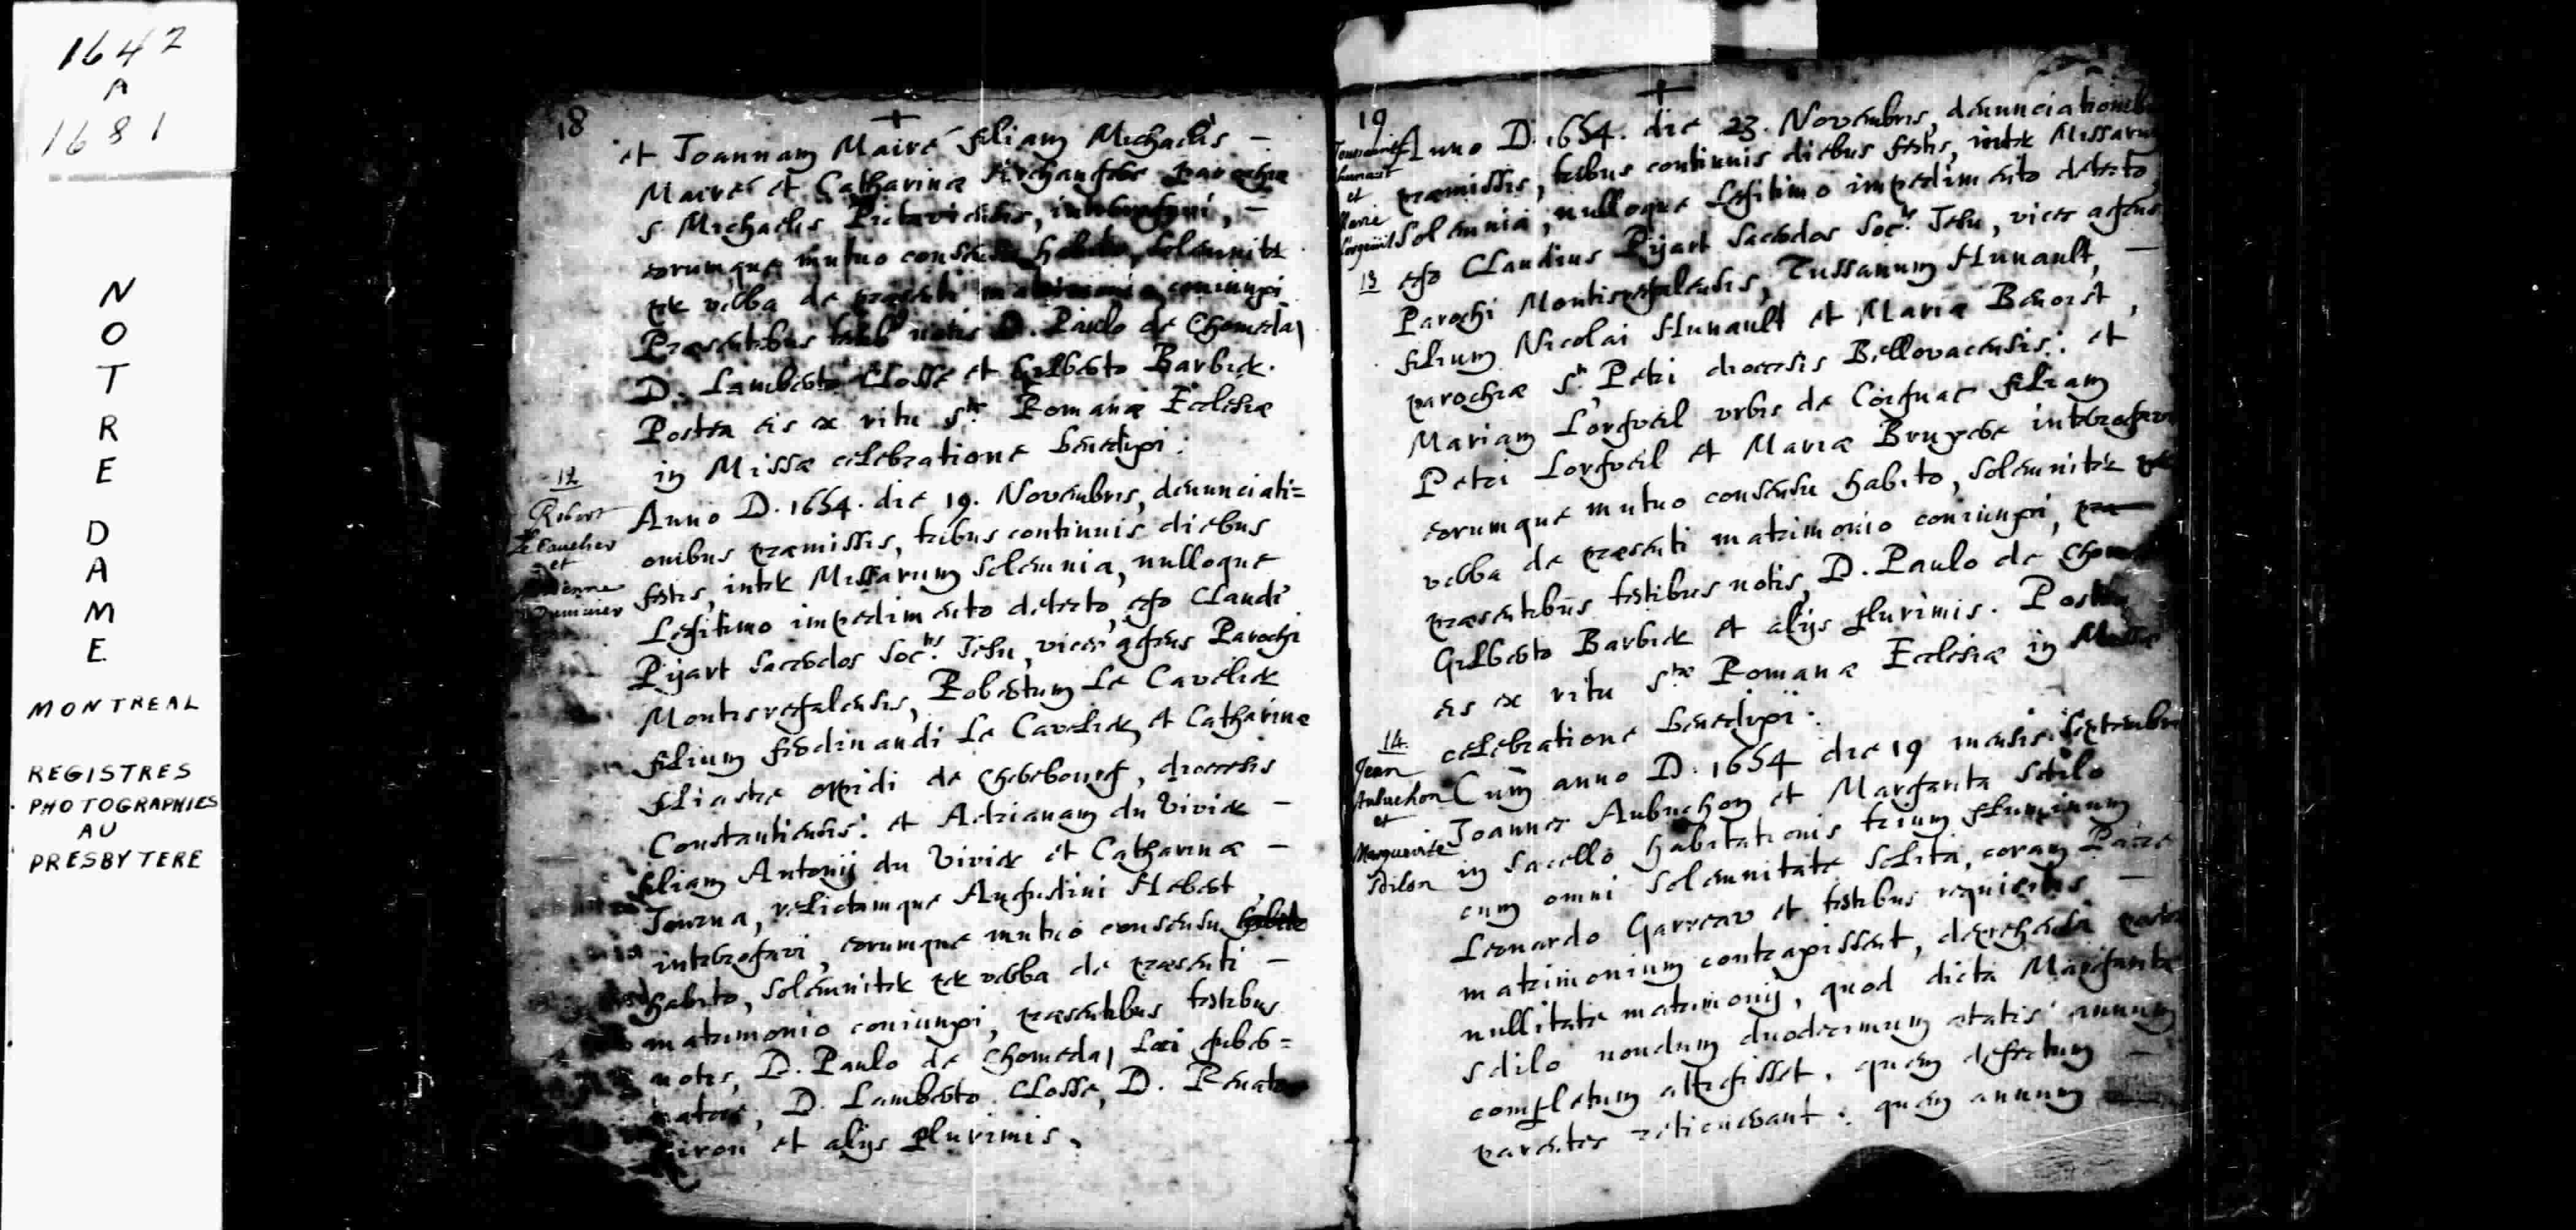 1642
A
1681
NOTRE
DAME
MONTREAL
REGISTRES
PHOTOGRAPHIES
AU
PRESBYTERE
18
et Joannam Mairé filiam Michaelis –
Mairé et Catharinæ Archangebe parochiæ
S. Michaelis Pictaviensis, interrogavi, –
eorumque mutuo consensu habito, solemniter
per verba de præsenti matrimonio coniunxi
Præsentibus notis D. Paulo de Chomeday
D. Lamberto Closse et Gilberto Barbier.
Postea eis ex ritu Stæ Romanæ Ecclesiæ
in Missæ celebratione benedixi.
12
Robert
Le Cauelier
et
Adrienne
Duuiuier
Anno D. 1654. die 19. Novembris, denunciati=
onibus præmissis, tribus continuis diebus
festis, inter Missarum solemnia, nulloque
Legitimo impedimento detecto, ego Claudi9
Pijart sacerdos Soctis Jesu, vices agens Parochi
Montisregalensis, Robertum Le Cavelier
filium ferdinandi Le Cavelier, et Catharinæ
fliastre oppidi de Cherebourg, diœcesis
Constantiensis: et Adrianam du Vivier –
filiam Antonij du Vivier et Catharinæ –
Journa, relictamque Augustini Hebert,
interrogavi, eorumque mutuo consensu habito
habito, solemniter per verba de præsenti –
matrimonio coniunxi, præsentibus testibus
notis, D. Paulo de Chomeday Loci guber=
natore, D. Lamberto Closse, D. Renato
et alijs plurimis.
19
Toussaint
hunault
et
Marie
Lorgueil
13
Anno D. 1654. die 23. Novembris, denunciationibus
præmissis, tribus continuis diebus festis, inter Missarum
Solemnia, nulloque Legitimo impedimento detecto,
ego Claudius Pijart Sacerdos Soctis Jesu, vices agens
Parochi Montisregalensis, Tussanum Hunault, –
filium Nicolai Hunault et Mariæ Benoist,
parochiæ Sti Petri diœcesis Bellovacensis: et
Mariam Lorgveil vrbis de Coignac filiam
Petri Lorgveil et Mariæ Bruyere interrogavi
eorumque mutuo consensu habito, solemniter per
verba de præsenti matrimonio coniunxi, præ
præsentibus testibus notis, D. Paulo de Chomeday
Gilberto Barbier et alijs plurimis. Postea
eis ex ritu Stæ Romanæ Ecclesiæ in Missæ
celebratione benedixi.
14.
Jean
Aubuchon
et
Marguerite
Sédilon
Cum anno D. 1654 die 19 mensis Septembris
Joannes Aubuchon et Margarita Sédilo
in sacello habitationis trium fluminum
cum omni solemnitate solita, coram Patre
Leonardo Garreav et testibus requisitis –
matrimonium contraxissent, deprehensa postea
nullitate matrimonij, quod dicta Margarita
Sédilo nondum duodecimum ætatis annum
completum attigisset, quem defectum –
parentes reticuerant: quem annum